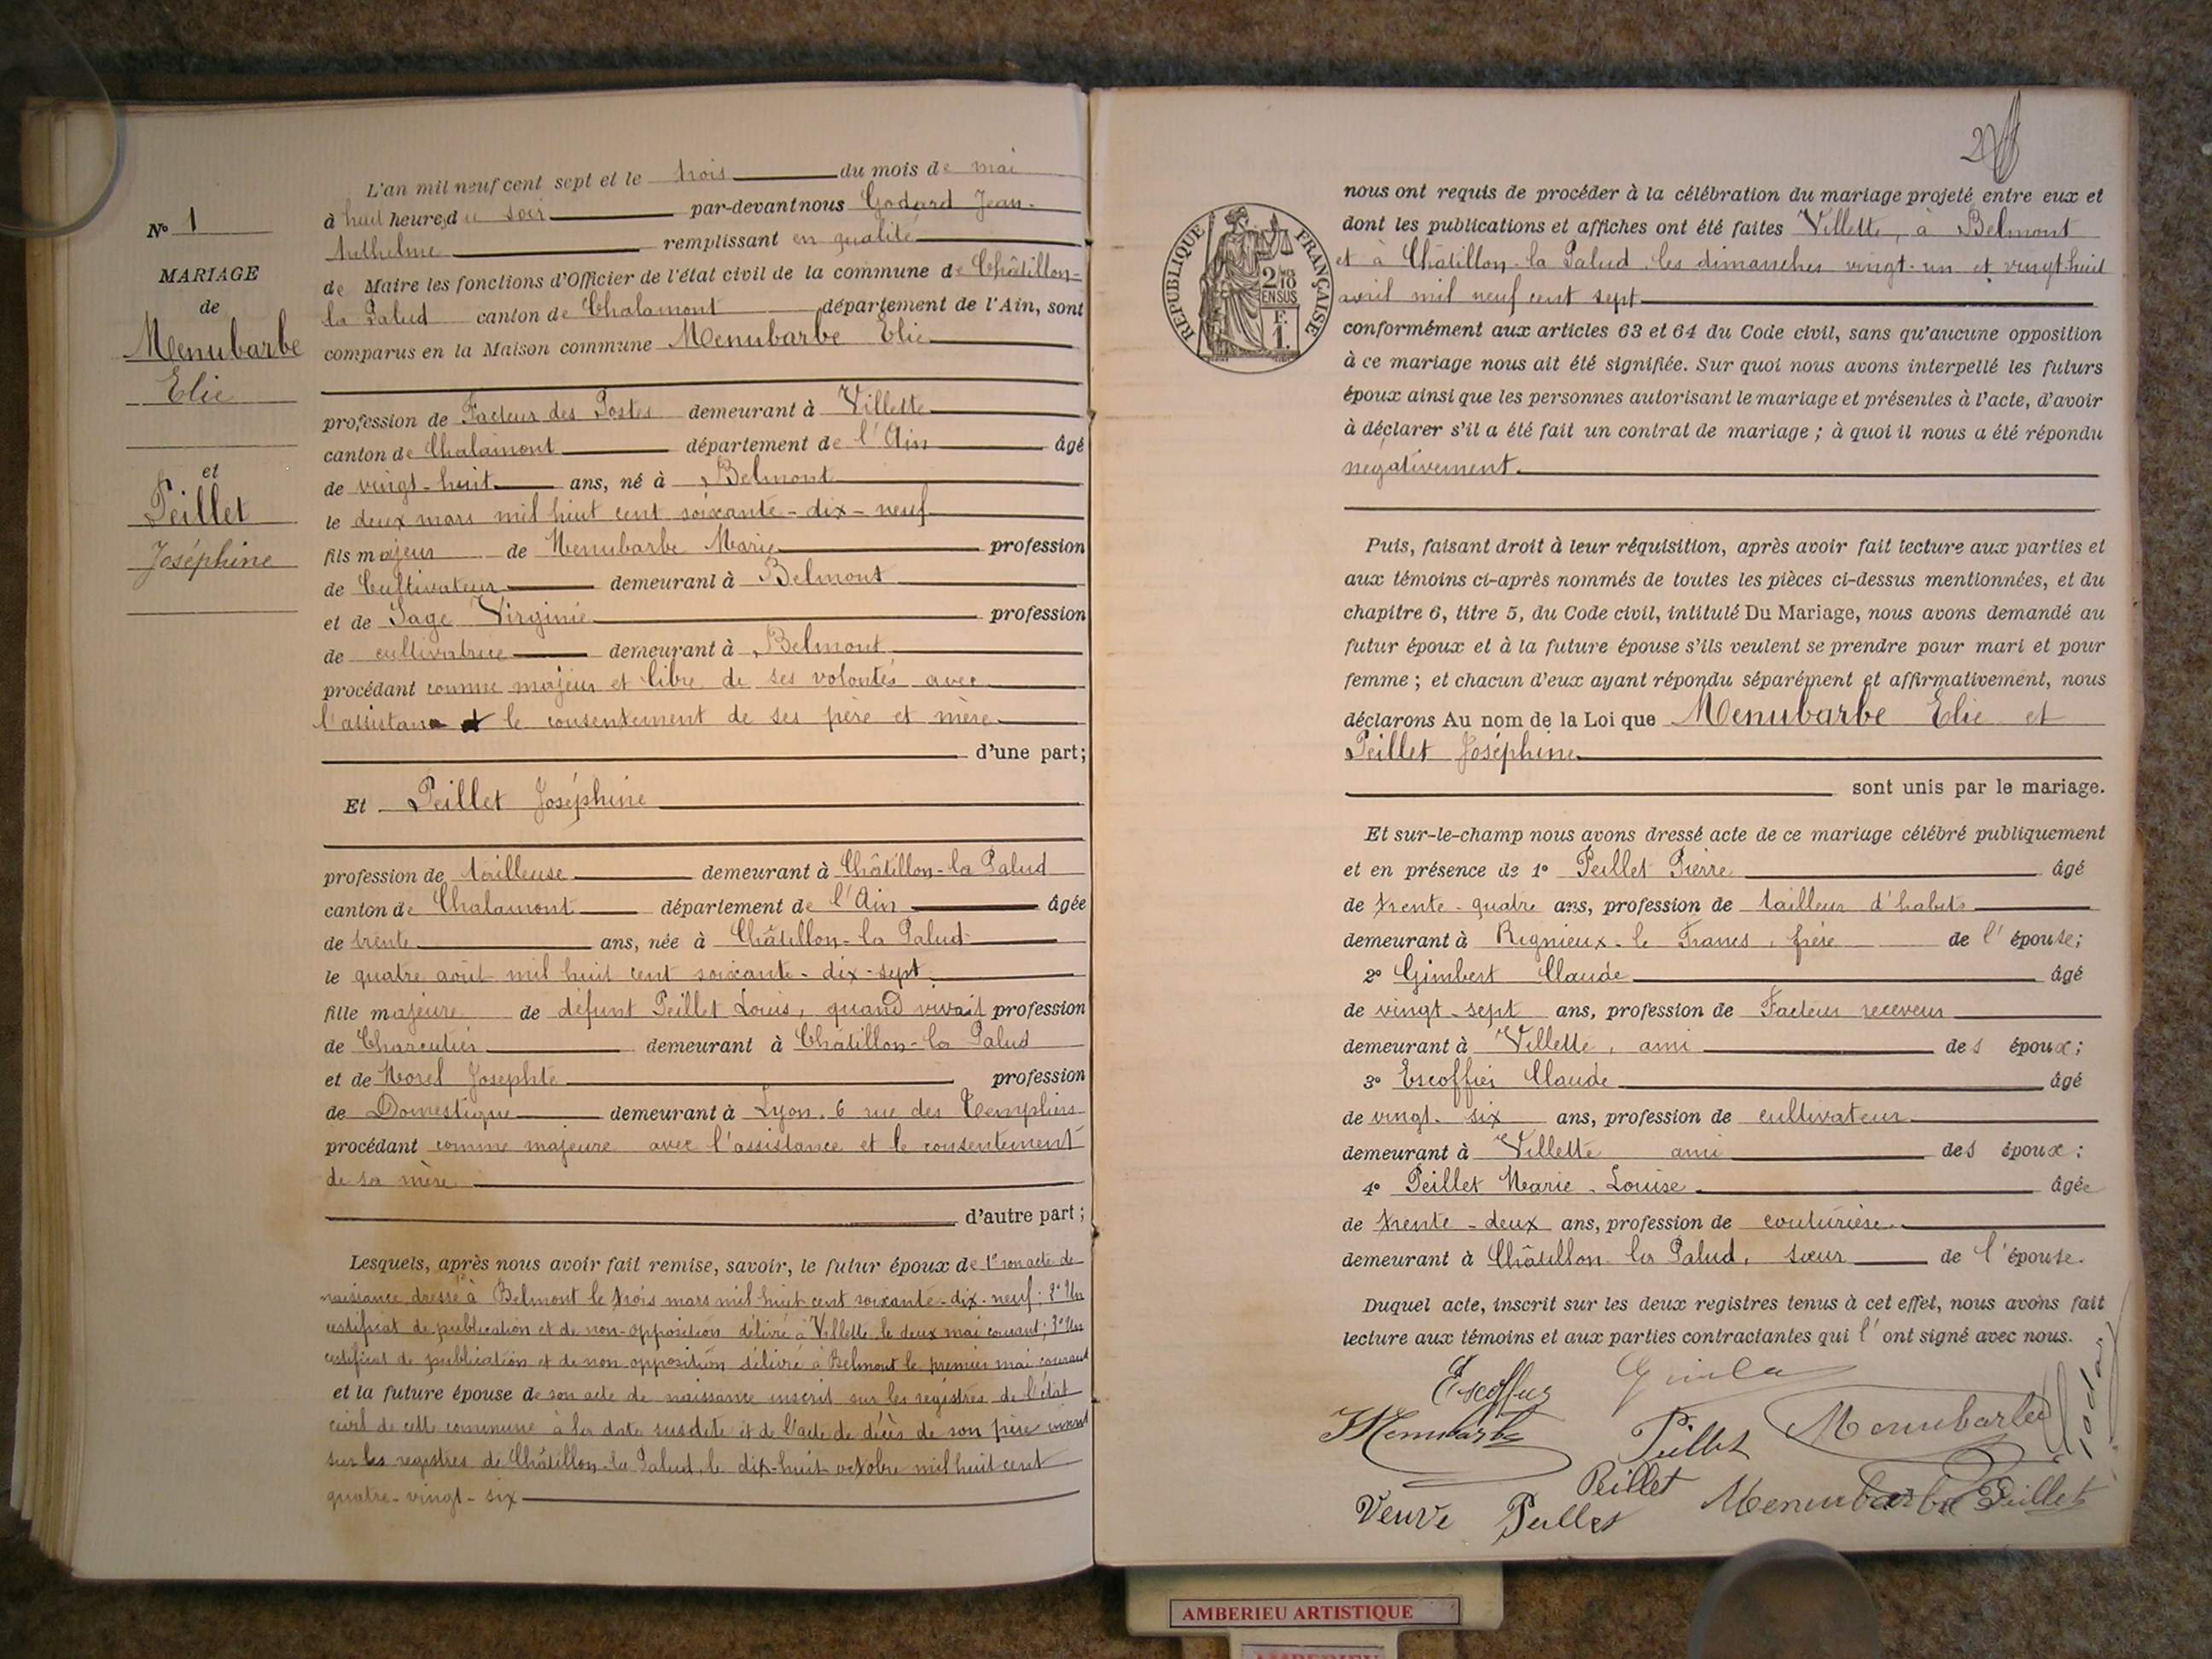 N° 1
MARIAGE
de
Menubarbe
Elie
et
Peillet
Joséphine
L'an mil neuf cent sept et le trois du mois de mai
à huit heures du soir par-devant nous Godard Jean-
Anthelme remplissant en qualité
de Maire les fonctions d'Officier de l'état civil de la commune de Châtillon-
la Palud canton de Chalamont département de l'Ain, sont
comparus en la Maison commune Menubarbe Elie
profession de Facteur des Postes demeurant à Villette
canton de Chalamont département de l'Ain âgé
de vingt-huit ans, né à Belmont
le deux mars mil huit cent soixante-dix-neuf
fils majeur de Menubarbe Marie profession
de Cultivateur demeurant à Belmont
et de Sage Virginie profession
de cultivatrice demeurant à Belmont
procédant comme majeur et libre de ses volontés avec
l'assistance et le consentement de ses père et mère
d'une part;
Et Peillet Joséphine
profession de tailleuse demeurant à Châtillon-la Palud
canton de Chalamont département de l'Ain âgée
de trente ans, née à Châtillon-la Palud
le quatre août mil huit cent soixante-dix-sept
fille majeure de défunt Peillet Louis, quand vivait profession
de Charcutier demeurant à Châtillon-la Palud
et de Morel Josephte profession
de Domestique demeurant à Lyon. 6 rue des Templiers
procédant comme majeure avec l'assistance et le consentement
de sa mère
d'autre part;
Lesquels, après nous avoir fait remise, savoir, le futur époux de 1° son acte de
naissance dressé à Belmont le trois mars mil huit cent soixante-dix-neuf; 2° Un
certificat de publication et de non-opposition délivré à Villette le deux mai courant; 3° Un
certificat de publication et de non opposition délivré à Belmont le premier mai courant
et la future épouse de son acte de naissance inscrit sur les registres de l'état
civil de cette commune à la date susdite et de l'acte de décès de son père inscrit
sur les registres de Châtillon-la Palud, le dix-huit octobre mil huit cent
quatre-vingt-six
RÉPUBLIQUE FRANÇAISE
2/10
EN SUS
F.
1.
nous ont requis de procéder à la célébration du mariage projeté entre eux et
dont les publications et affiches ont été faites Villette, à Belmont
et à Châtillon-la Palud, les dimanches vingt-un et vingt huit
avril mil neuf cent sept
conformément aux articles 63 et 64 du Code civil, sans qu'aucune opposition
à ce mariage nous ait été signifiée. Sur quoi nous avons interpellé les futurs
époux ainsi que les personnes autorisant le mariage et présentes à l'acte, d'avoir
à déclarer s'il a été fait un contrat de mariage; à quoi il nous a été répondu
négativement.
Puis, faisant droit à leur réquisition, après avoir fait lecture aux parties et
aux témoins ci-après nommés de toutes les pièces ci-dessus mentionnées, et du
chapitre 6, titre 5, du Code civil, intitulé Du Mariage, nous avons demandé au
futur époux et à la future épouse s'ils veulent se prendre pour mari et pour
femme; et chacun d'eux ayant répondu séparément et affirmativement, nous
déclarons Au nom de la Loi que Menubarbe Elie et
Peillet Joséphine
sont unis par le mariage.
Et sur-le-champ nous avons dressé acte de ce mariage célébré publiquement
et en présence de 1° Peillet Pierre âgé
de trente-quatre ans, profession de tailleur d'habits
demeurant à Rignieux-le Franc, frère de l'épouse;
2° Gimbert Claude âgé
de vingt-sept ans, profession de Facteur receveur
demeurant à Villette, ami des époux;
3° Escoffier Claude âgé
de vingt-six ans, profession de cultivateur
demeurant à Villette ami des époux;
4° Peillet Marie-Louise âgée
de trente-deux ans, profession de couturière
demeurant à Châtillon-la Palud, sœur de l'épouse.
Duquel acte, inscrit sur les deux registres tenus à cet effet, nous avons fait
lecture aux témoins et aux parties contractantes qui l'ont signé avec nous.
Escoffier
Menubarbe Peillet Menubarbe Godard
Peillet
Veuve Peillet Menubarbe Peillet
AMBERIEU ARTISTIQUE
AMBERIEU